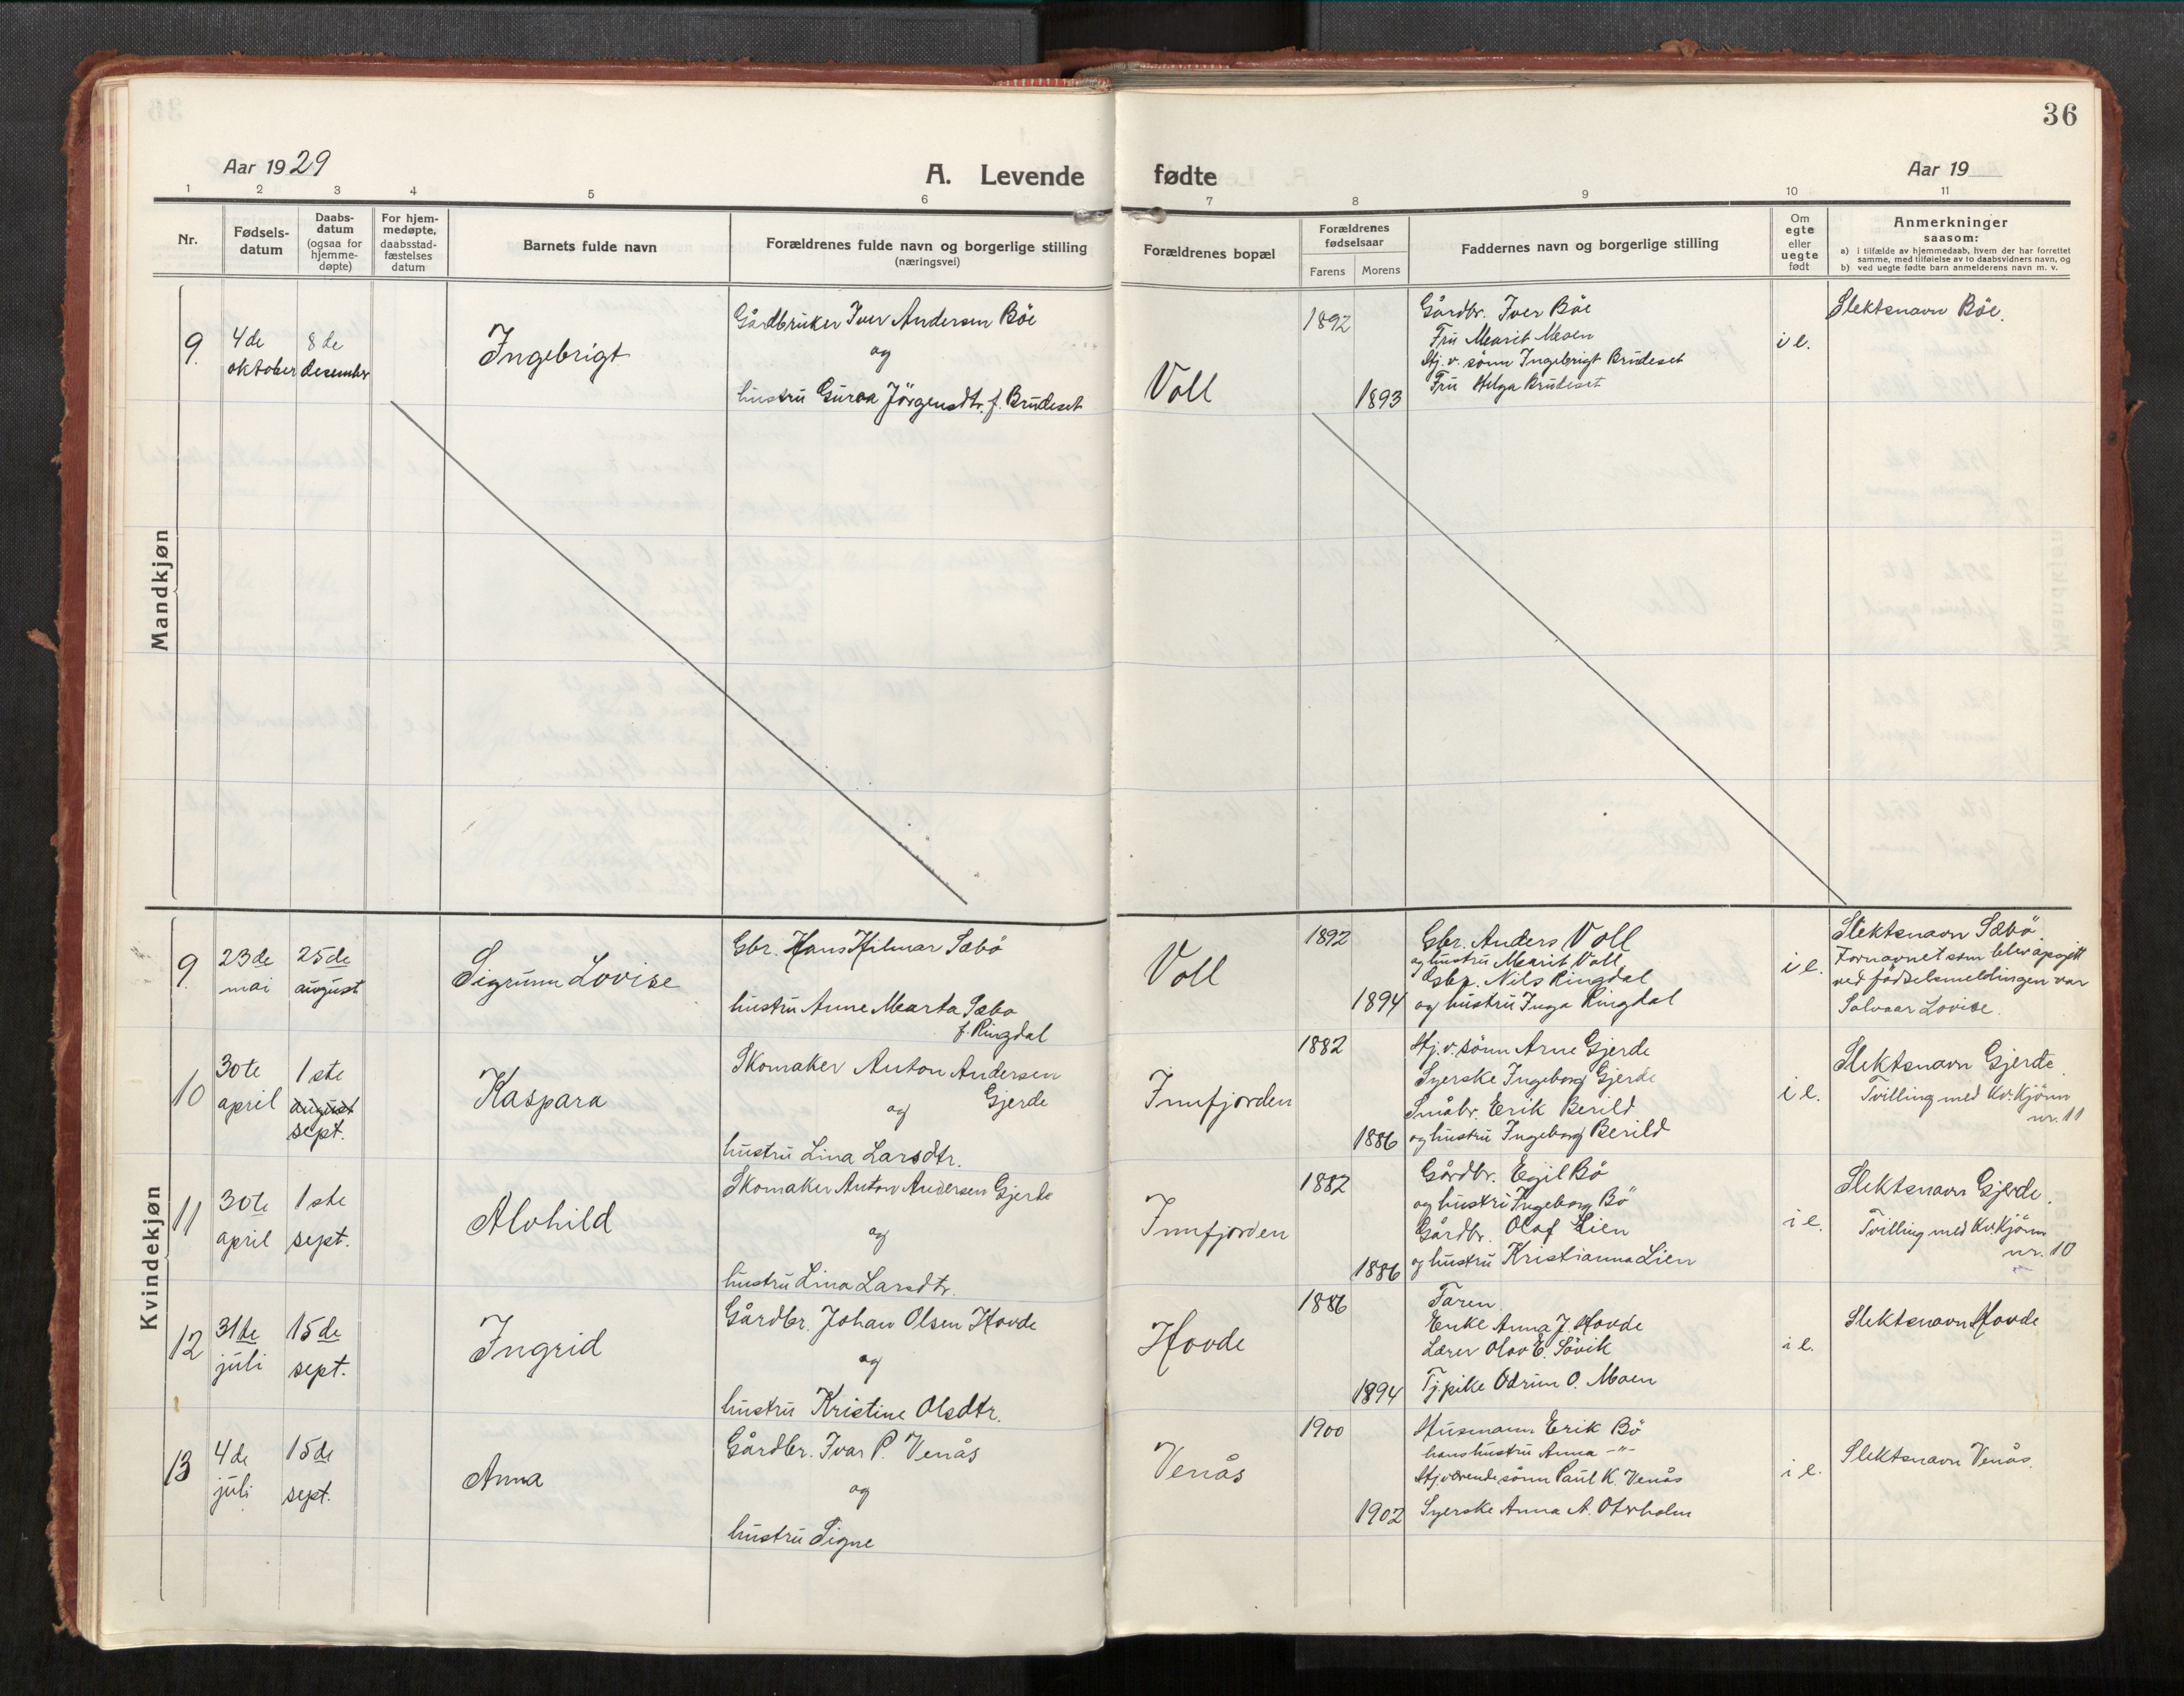 36
Aar 1929
A. Levende fødte
Aar 19
1 2 3 4 5 6 7 8 9 10 11
Nr.
Fødsels-
datum
Daabs-
datum
(ogsaa for
hjemme-
døpte)
For hjem-
medøpte,
daabsstad-
fæstelses
datum
Barnets fulde navn
Forældrenes fulde navn og borgerlige stilling
(næringsvei)
Forældrenes bopæl
Forældrenes
fødselsaar
Farens Morens
Faddernes navn og borgerlige stilling
Om
egte
eller
uegte
født
Anmerkninger
saasom:
a) i tilfælde av hjemmedaab, hvem der har forrettet
samme, med tilføielse av to daabsvidners navn, og
b) ved uegte fødte barn anmelderens navn m. v.
Mandkjøn
9.
4de
oktober
8de
desember
Ingebrigt
Gårdbruker Iver Andersen Böe
og
hustru Guroa Jörgensdtr. f. Brudeset
Voll
1892
1893
Gårdbr. Iver Böe
Fru Marit Moen
Hj. v. sönn Ingebrigt Brudeset
Fru Helga Brudeset
i e.
Slektsnavn Böe.
Kvindekjøn
9
23de
mai
25de
august
Sigrunn Lovise
Gbr. Hans Hilmar Sæbö
hustru Anne Marta Sæbo
f. Ringdal
Voll
1892
1894
Gbr. Anders Voll
og hustru Marit Voll
Gbr. Nils Ringdal
og hustru Inga Ringdal
i e.
Slektsnavn Sæbö
Fornavnet som blev opgitt
ved födselsmeldingen var
Salvaar Lovise.
10
30te
april
1ste
august
sept.
Kaspara
Skomaker Anton Andersen
Gjerde
og
hustru Lina Larsdtr.
Innfjorden
1882
1886
Hj. v. sönn Arne Gjerde
Syerske Ingeborg Gjerde
Småbr. Erik Berild
og hustru Ingeborg Berild
i e.
Slektsnavn Gjerde.
Tvilling med Kv. Kjönn
nr. 11
11
30te
april
1ste
sept.
Alvhild
Skomaker Anton Andersen Gjerde
og
hustru Lina Larsdtr.
Innfjorden
1882
1886
Gårdbr. Egil Bö
og hustru Ingeborg Bö
Gårdbr. Olaf Lien
og hustru Kristianna Lien
i e.
Slektsnavn Gjerde.
Tvilling med Kv. Kjönn
nr. 10
12
31te
juli
15de
sept.
Ingrid
Gårdbr. Johan Olsen Hovde
og
hustru Kristine Olsdtr.
Hovde
1886
1894
Faren.
Enke Anna J. Hovde
Lærer Olav E. Sövik
Tj.pike Odrun O. Moen
i e.
Slektsnavn Hovde
13
4de
juli
15de
sept.
Anna
Gårdbr. Ivar P. Venås
og
hustru Signe
Venås
1900
1902
Husmann Erik Bö
hans hustru Anna -"-
Hj.værende sönn Paul K. Venås
Syerske Anna A. Oterholm
i e.
Slektsnavn Venås.